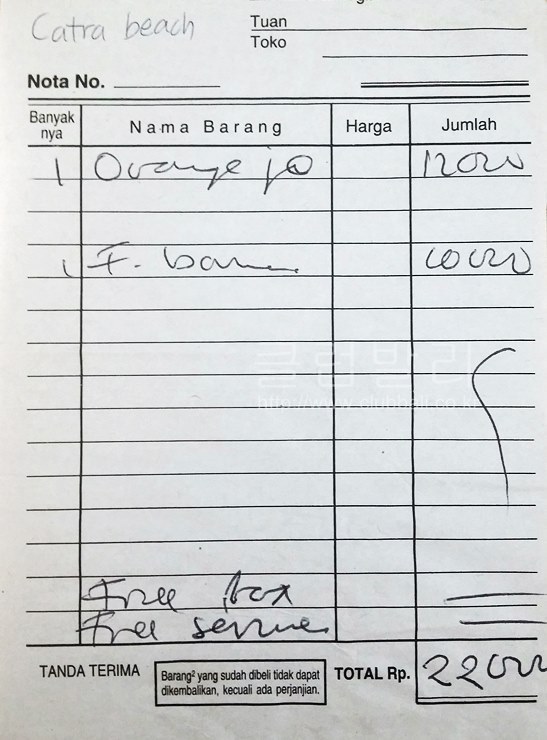 Catra beach
Tuan
Toko
Nota No.
Banyak nya Nama Barang Harga Jumlah
1 Orange jo 12000
1 F. ban 10000
클럽발리
http://www.clubbali.co.kr
Free box
Free service
TANDA TERIMA
Barang² yang sudah dibeli tidak dapat
dikembalikan, kecuali ada perjanjian.
TOTAL Rp. 22000